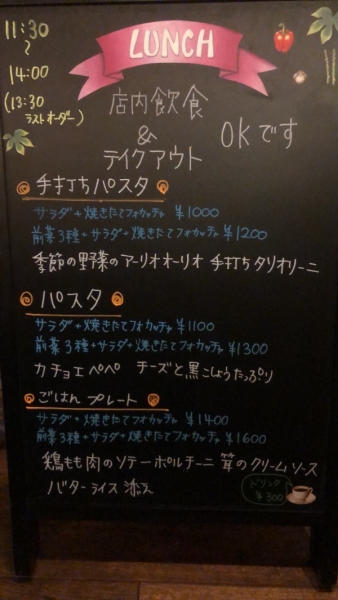 11:30
〜
14:00
(13:30
ラストオーダー)
LUNCH
店内飲食
&
テイクアウト
OKです
手打ちパスタ
サラダ+焼きたてフォカッチャ ¥1000
前菜3種+サラダ+焼きたてフォカッチャ ¥1200
季節の野菜のアーリオオーリオ 手打ちタリオリーニ
パスタ
サラダ+焼きたてフォカッチャ ¥1100
前菜3種+サラダ+焼きたてフォカッチャ ¥1300
カチョエペペ チーズと黒こしょうたっぷり
ごはんプレート
サラダ+焼きたてフォカッチャ ¥1400
前菜3種+サラダ+焼きたてフォカッチャ ¥1600
鶏もも肉のソテーポルチーニ茸のクリームソース
バターライス添え
ドリンク
¥300